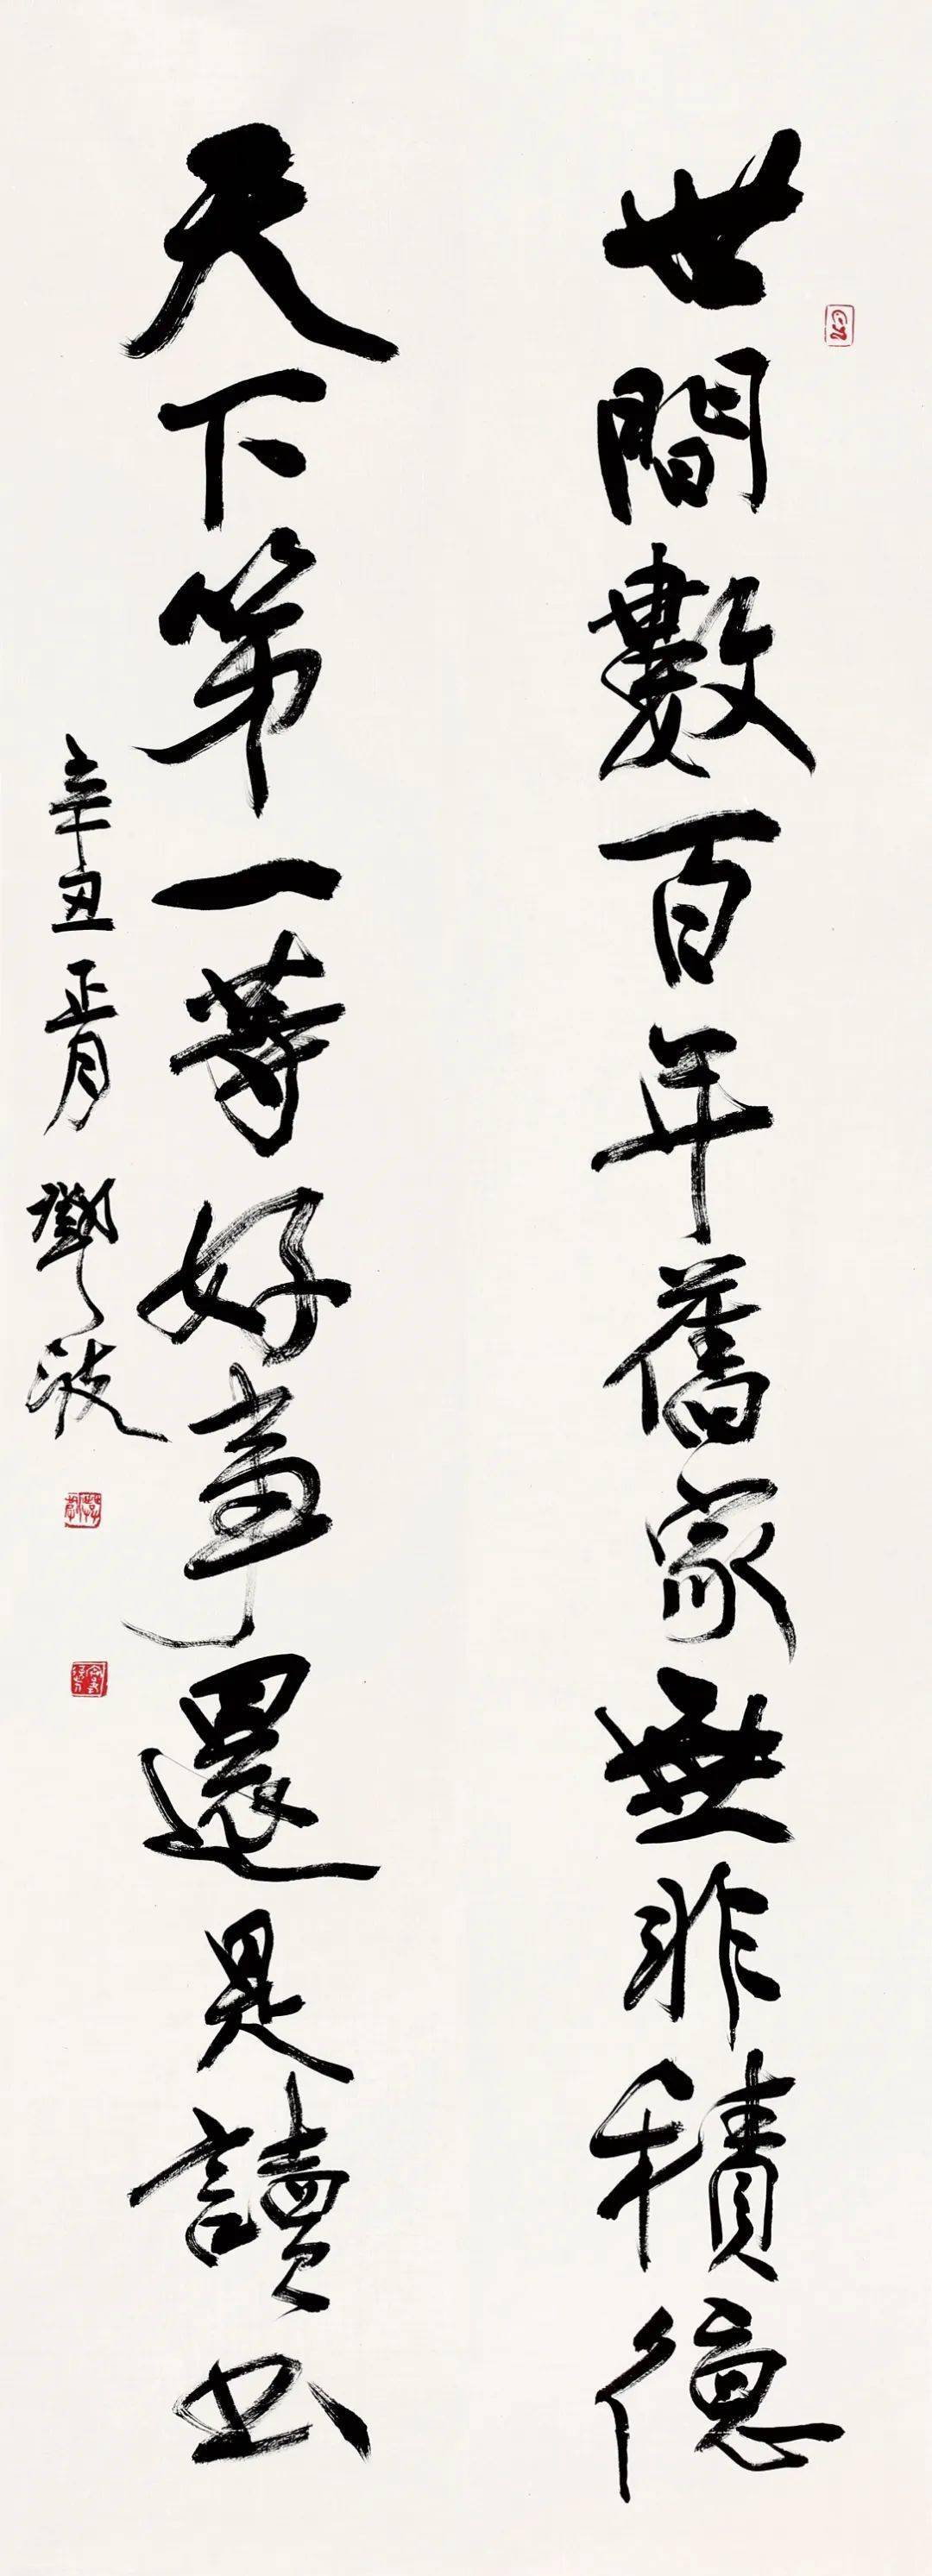 世間數百年舊家無非積德
天下第一等好事還是讀書
辛丑正月 鄧波